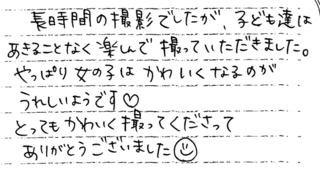 長時間の撮影でしたが、子ども達は
あきることなく楽しんで撮っていただきました。
やっぱり女の子はかわいくなるのが
うれしいようです♡
とってもかわいく撮ってくださって
ありがとうございました☺